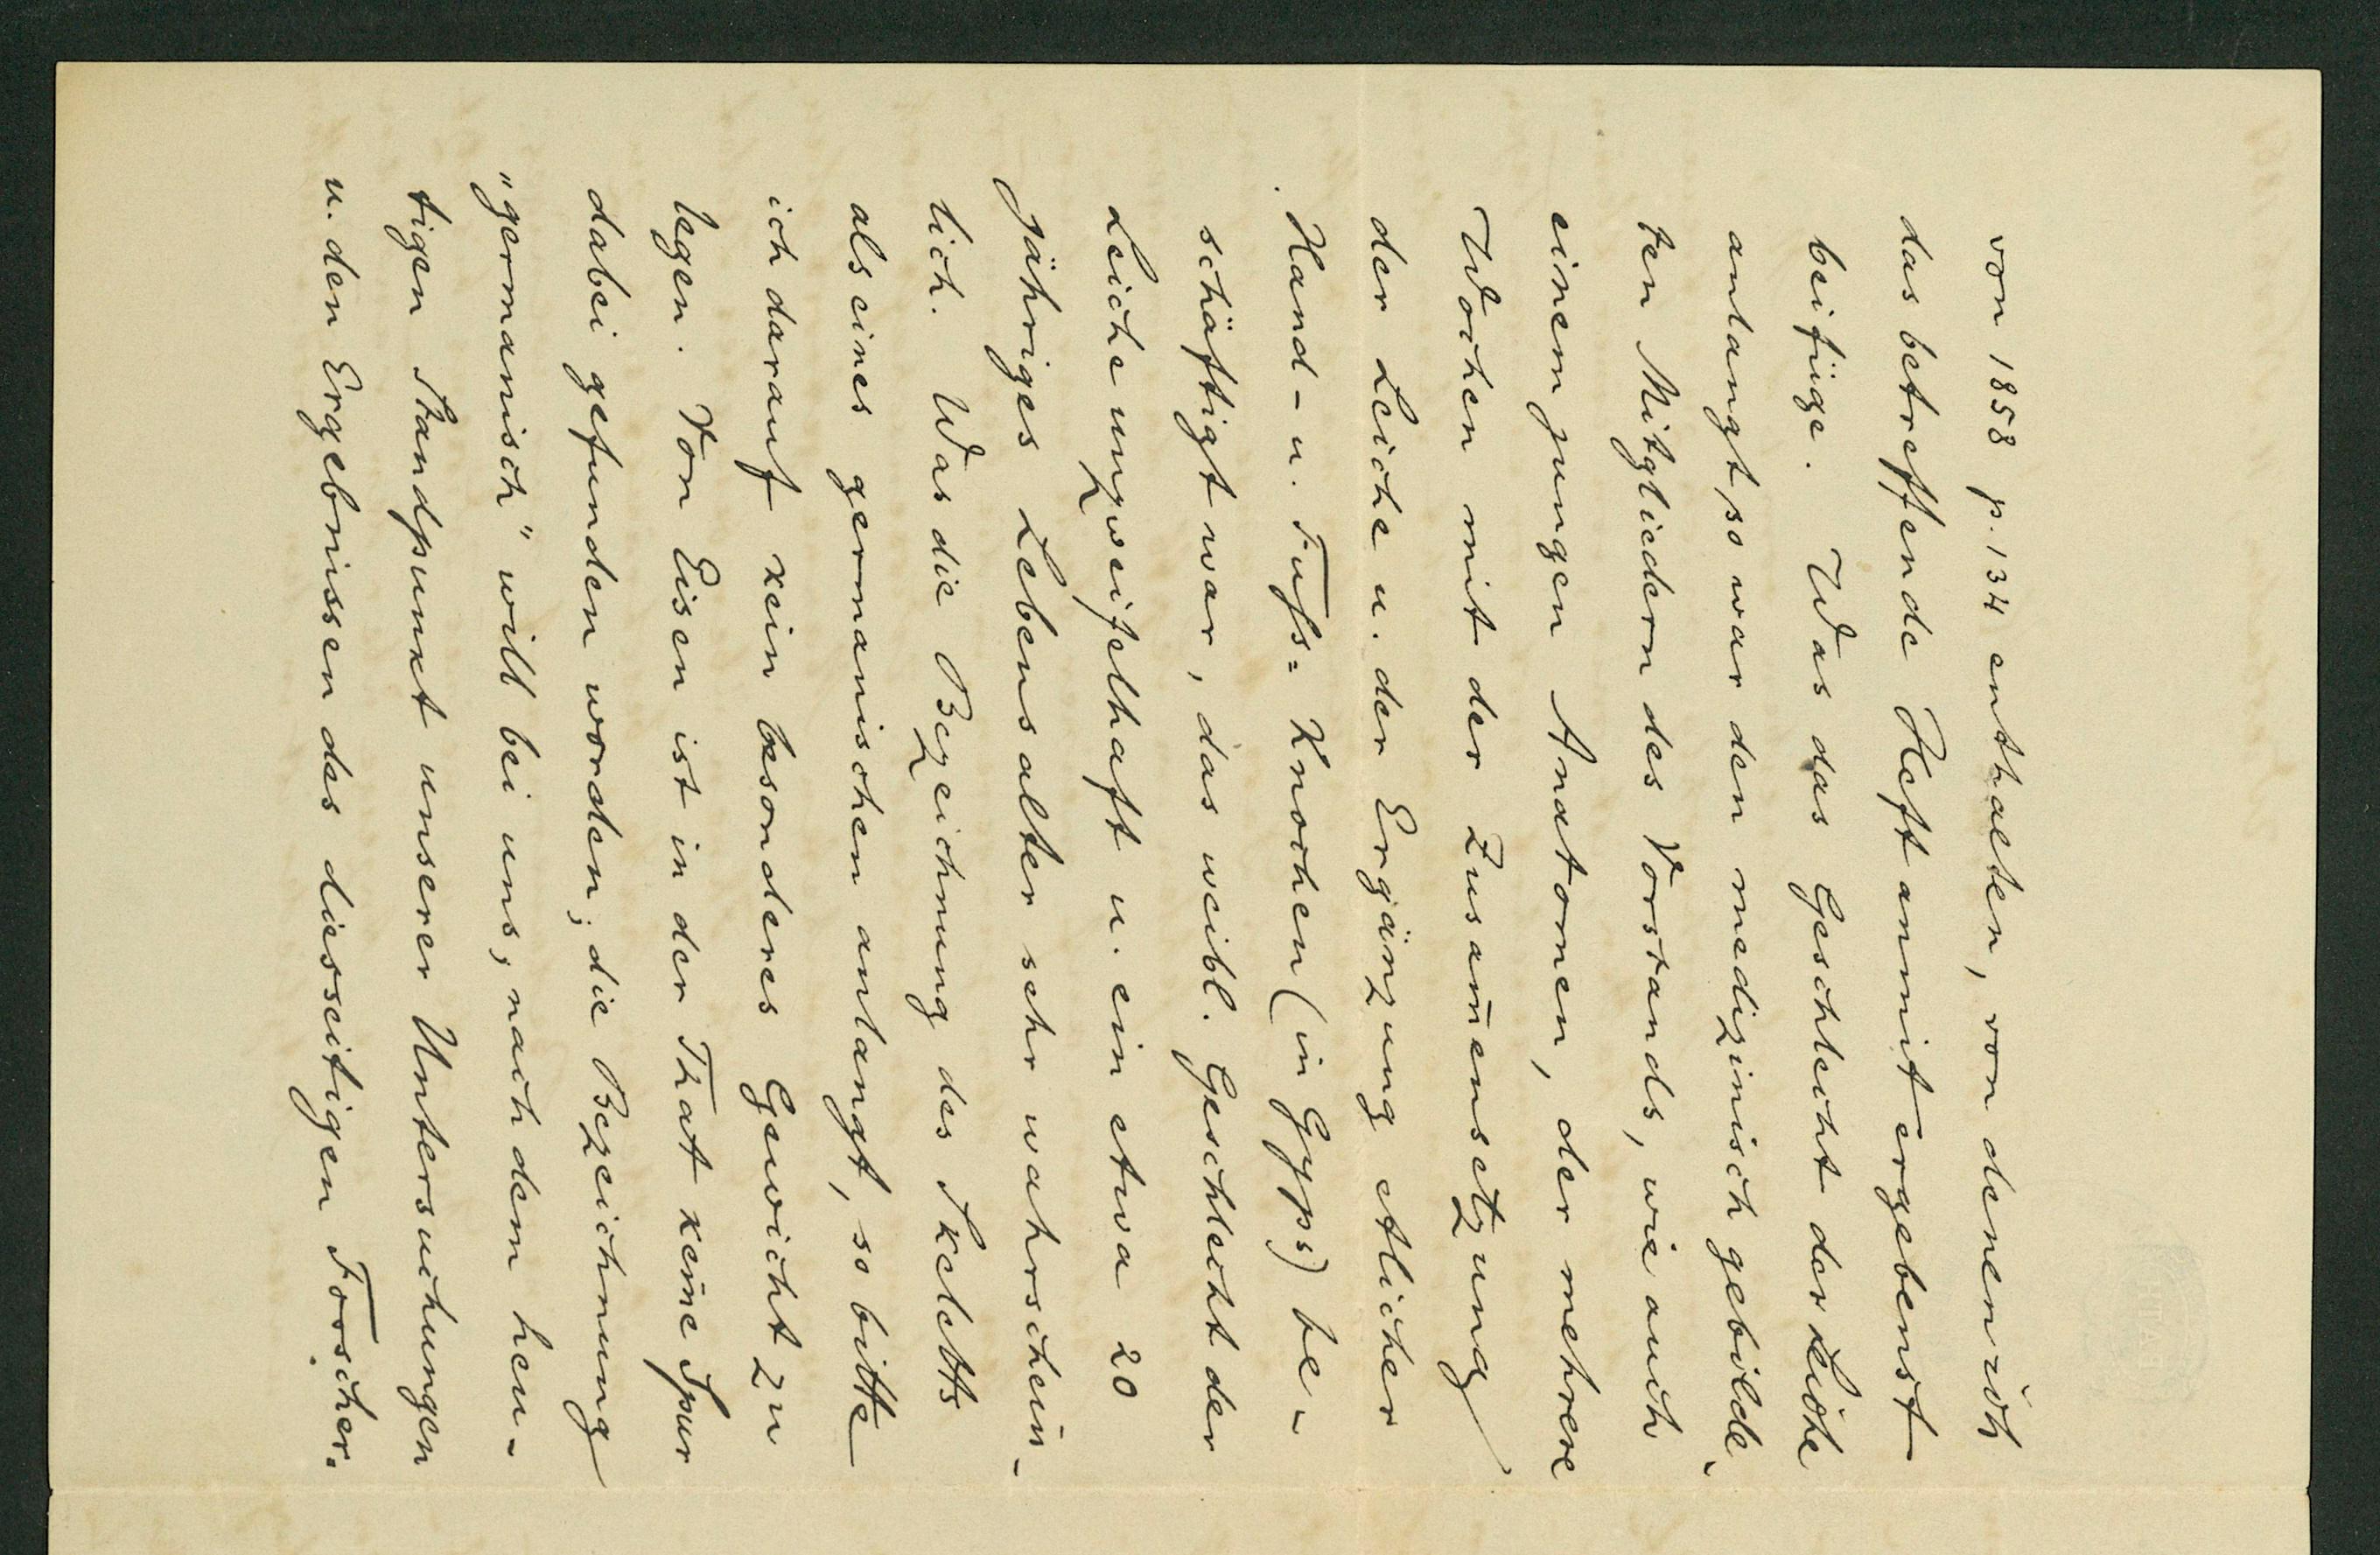 von 1858 p. 134 enthalten, von denen ich
das betreffende Heft anmit ergebenst
beifüge. Was das Geschlecht der Leiche
anlangt, so war den medizinisch gebilde-
ten Mitgliedern des Vorstands, wie auch
einem jungen Anatomen, der mehrere
Wochen mit der Zusam̄ensetzung
der Leiche u. der Ergänzung etlicher
Hand- u. Fuſs= Knochen (in Gyps) be-
schäftigt war, das weibl. Geschlecht der
Leiche unzweifelhaft u. ein etwa 20
jähriges Lebensalter sehr wahrschein-
lich. Was die Bezeichnung des Skeletts
als eines germanischen anlangt, so bitte
ich darauf kein besonderes Gewicht zu
legen. Von Eisen ist in der That keine Spur
dabei gefunden worden; die Bezeichnung
"germanisch" will bei uns, nach dem heu-
tigen Standpunkt unserer Untersuchungen
u. den Ergebnissen des diesseitigen Forscher.